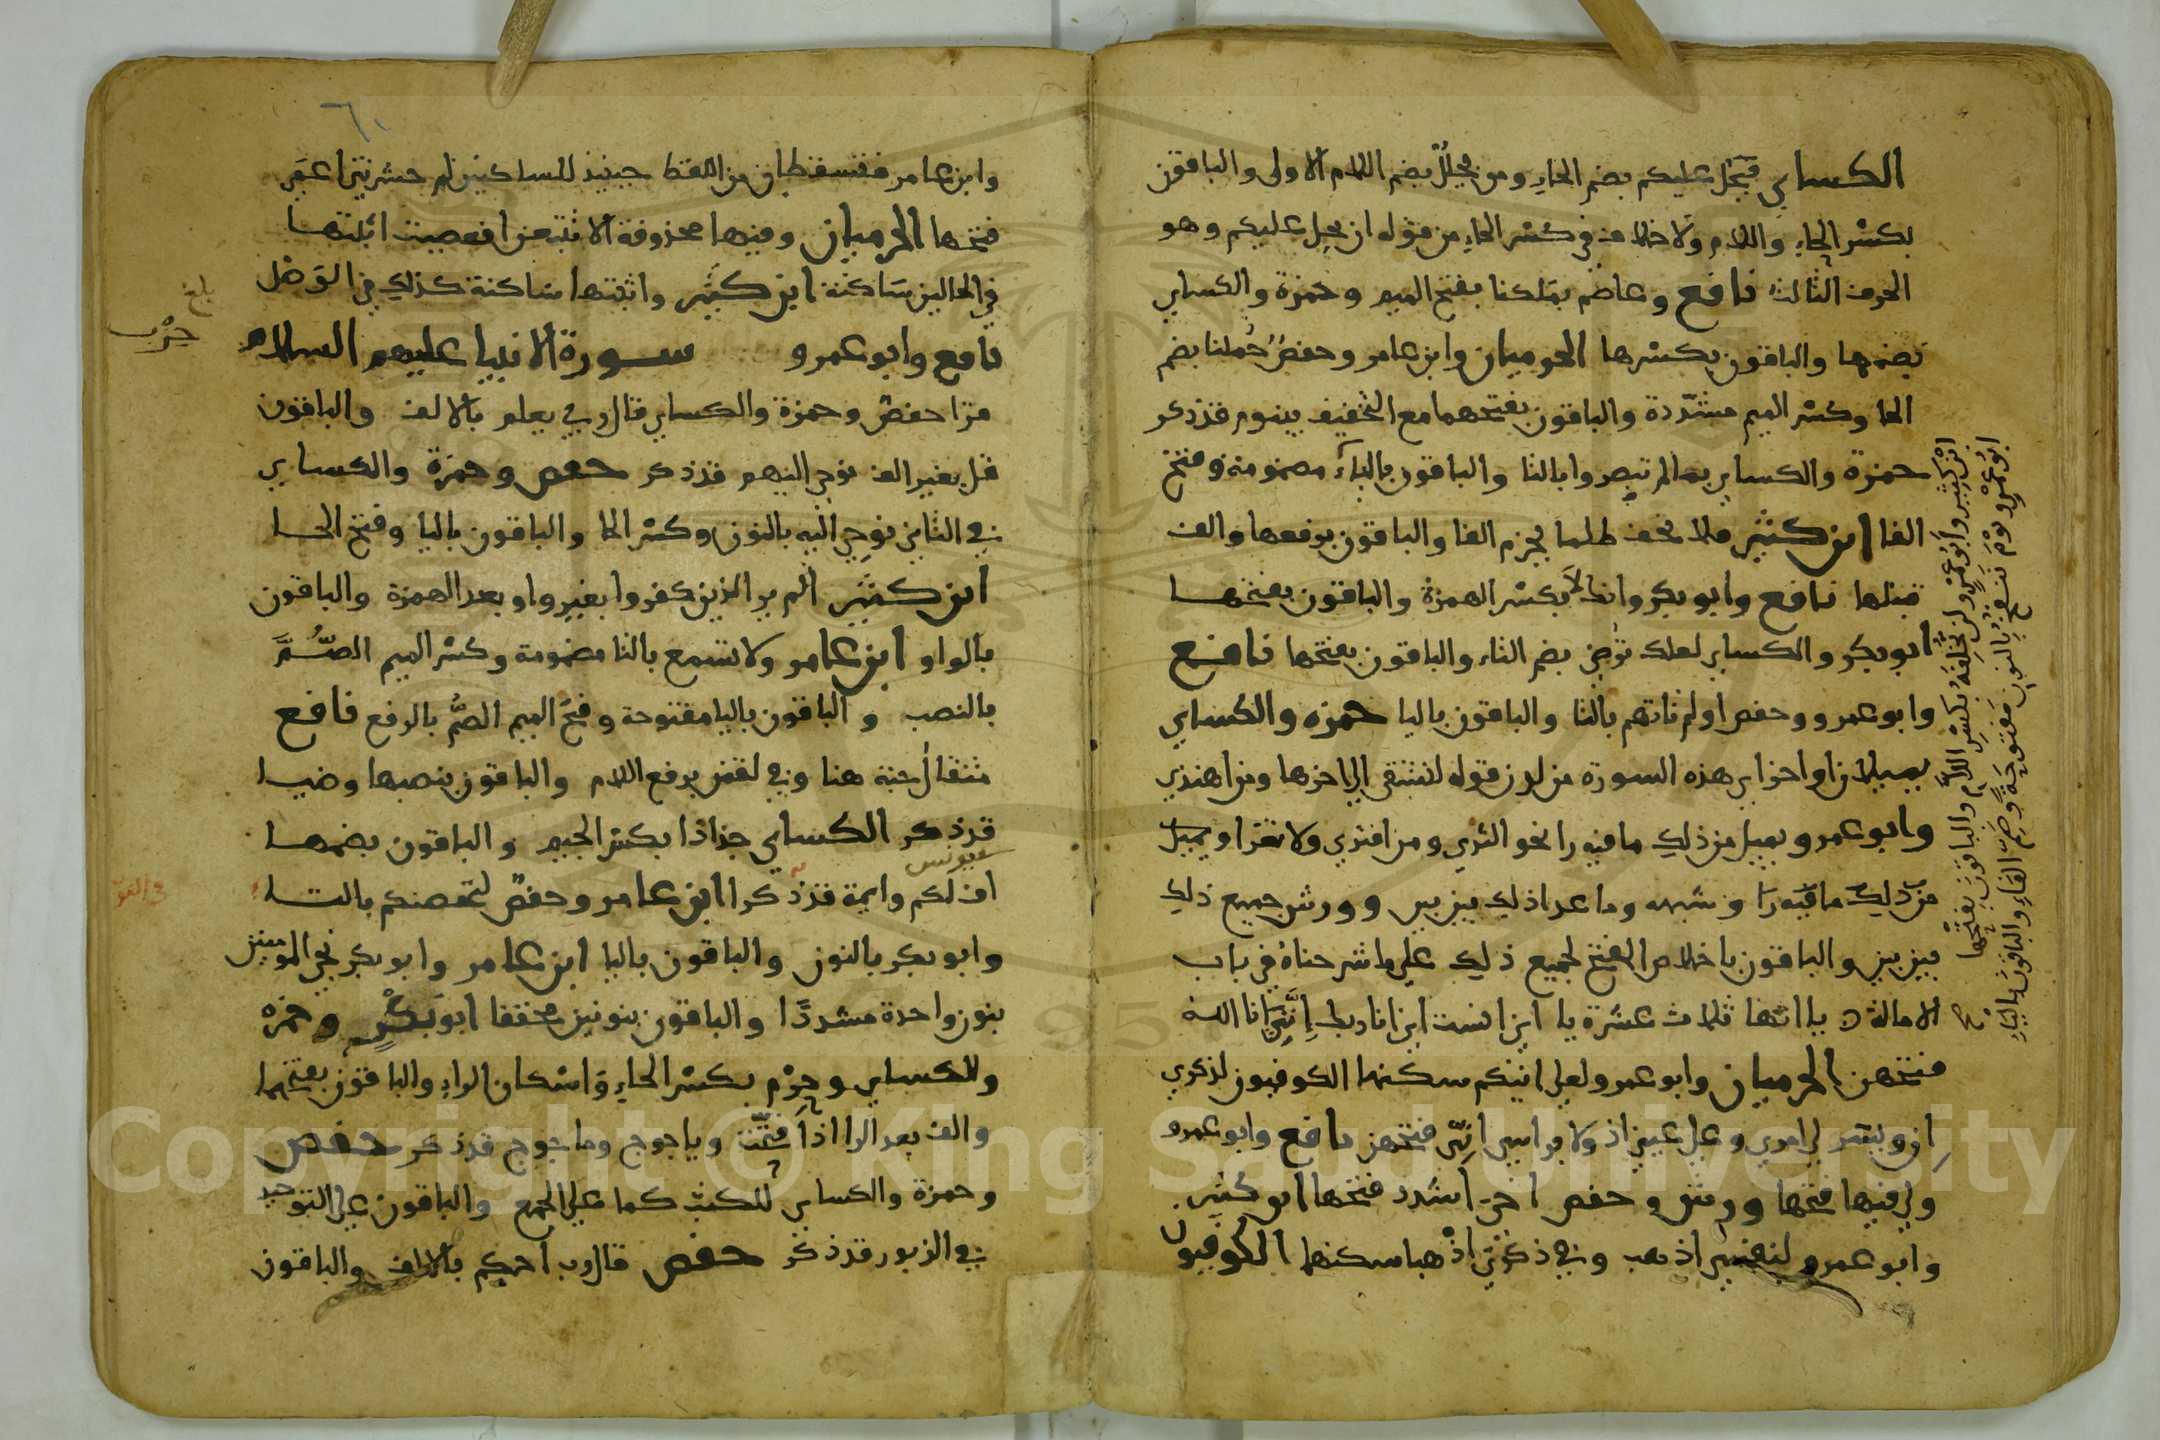 الكساي فيحُل عليكم بضم الحاءِ ومن يحلُلْ بضم اللام الاولى والباقون
بكسْر الحاءِ واللام ولا خلاف في كسْر الحاءِ من قوله ان يحِل عليكم وهو
الحرف الثالث نافع وعاصم بمَلكنا بفتح الميم وحمزة والكساي
بضمها والباقون بكسْرها الحرميان وابن عامر وحفصٌ حُملنا بضم
الحا وكسْر الميم مشدّدة والباقون بفتحهما مع التخفيف يبنوم قد ذكر
حمزة والكساي بما لم تبصروا بالتا والباقون باليآء مضمومة وفتح
الفا ابن كثير فلا يخف ظلما بجزم الفا والباقون برفعها والف
قبلها نافع وابو بكر وانك لا بكسْر الهمزة والباقون بفتحها
ابو بكر والكساي لعلك تُرضى بضم التاء والباقون بفتحها نافع
وابو عمرو وحفص اولم تاتهم بالتا والباقون باليا حمزه والكساي
يميلان اواخر اي هذه السورة من لدن قوله لتشقى الى اخرها ومن اهتدى
وابو عمرو يميل من ذلك ما فيه را نحو الثرى ومن افترى ولا تعرا ويميل
من ذلك ما فيه را وشبهه وما عدا ذلك بين بين وورش جميع ذلك
بين بين والباقون باخلاص الفتح لجميع ذلك على ما شرحناهُ في باب
الامالة ياااتها ثلاث عشرة يا اني انست اني انا ربك اِنَّنِيَ انا الله
فتحهن الحرميان وابو عمرو لعلي اتيكم سكنها الكوفيون لذكري
ان ويسّر لي امري وعلى عيني اذ ولا براسي اني فتحهن نافع وابو عمرو
ولي فيها فتحها ورش وحفص اخي اشدد فتحها ابن كثير
وابو عمرو لنفسي اذهب وفي ذكري اذهبا سكنها الكوفيون
ابْن كثير وابو عمْرٍو لن تخلِفَهُ بكسْرِ اللام والباقون بفتْحها صح
ابُو عمْرٍو يَوْمَ ننفخ بالنون مفتوحةً وضم الفاءِ والباقون بالياءِ
٦٠
وابن عامر فتسقطان من اللفظ حينيذ للساكنين لم حشرتني اعمَى
فتحها الحرميان وفيها محذوفة الا تتبعن افعصيت اثبتها
في الحالين سَاكنة ابن كثير واثبتها ساكنة كذلك في الوَصْل
نافع وابو عمرو سورة الانبيا عليهم السلام
بلغ
حِزْب
قرا حفصٌ وحمزة والكساي قال ربي يعلم بالالف والباقون
قل بغير الف نوحي اليهم قد ذكر حفص وحمزة والكساي
في الثاني نوحي اليه بالنون وكسْر الحا والباقون باليا وفتح الحا
ابن كثير الم ير الذين كفروا بغير واو بعد الهمزة والباقون
بالواو ابن عامر ولا تسمع بالتا مضمومة وكسْر الميم الصُّمَّ
بالنصب والباقون باليا مفتوحة وفتح الميم الصُّمُّ بالرفع نافع
مثقالُ حبة هنا وفي لقمن برفع اللام والباقون بنصبها وضيا
قد ذكر الكساي جذاذا بكسْر الجيم والباقون بضمها
اف لكم وايمة قد ذكرا ابن عامر وحفصٌ لتحصنكم بالتا
وابو بكر بالنون والباقون باليا ابن عامر وابو بكر نجي المومنين
بنون واحدة مشددًا والباقون بنونين مخففا ابو بَكْرٍ وحمزه
والكساي وحِرْم بكسْر الحاءِ وَاسْكان الراءِ والباقون بفتحهما
والف بعد الرا اذا فتحت وياجوج وماجوج قد ذكر حفص
وحمزة والكساي للكتب كما على الجمع والباقون على التوحيد
في الزبور قد ذكر حفص قال رب احكم بالالف والباقون
Copyright © King Saud University
1957